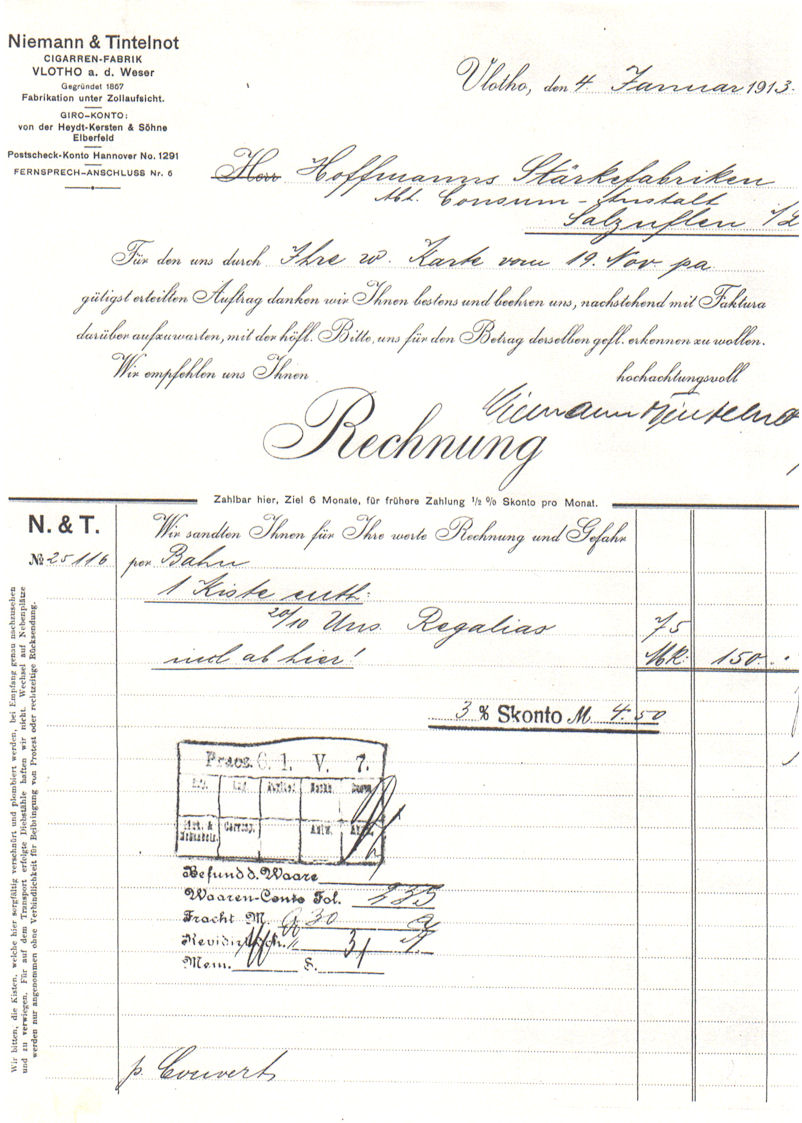 Niemann & Tintelnot
CIGARREN-FABRIK
VLOTHO a. d. Weser
Gegründet 1867
Fabrikation unter Zollaufsicht.
GIRO-KONTO:
von der Heydt-Kersten & Söhne
Elberfeld
Postscheck-Konto Hannover No. 1291
FERNSPRECH-ANSCHLUSS Nr. 6
Vlotho, den 4. Januar 1913.
Herr Hoffmanns Stärkefabriken
Abt. Consum-Anstalt
Salzuflen
Für den uns durch Ihre w. Karte vom 19. Nov. pa.
gütigst erteilten Auftrag danken wir Ihnen bestens und beehren uns, nachstehend mit Faktura
darüber aufzuwarten, mit der höfl. Bitte, uns für den Betrag derselben gefl. erkennen zu wollen.
Wir empfehlen uns Ihnen hochachtungsvoll
Niemann & Tintelnot
Rechnung
Zahlbar hier, Ziel 6 Monate, für frühere Zahlung ½ % Skonto pro Monat.
N. & T.
Wir sandten Ihnen für Ihre werte Rechnung und Gefahr
№ 25116 per Bahn
1 Kiste enth:
20/10 Uns. Regalias 75
incl ab hier! Mk: 150.
3 % Skonto M. 4.50
Praes. 6. 1. V. 7.
Befund d. Waare
Waaren-Conto Fol. 235
Fracht M. 30
Mem. S.
p. Couvert
Wir bitten, die Kisten, welche hier sorgfältig verschnürt und plombiert werden, bei Empfang genau nachzusehen
und zu verwiegen. Für auf dem Transport erfolgte Diebstähle haften wir nicht. Wechsel auf Nebenplätze
werden nur angenommen ohne Verbindlichkeit für Beibringung von Protest oder rechtzeitige Rücksendung.